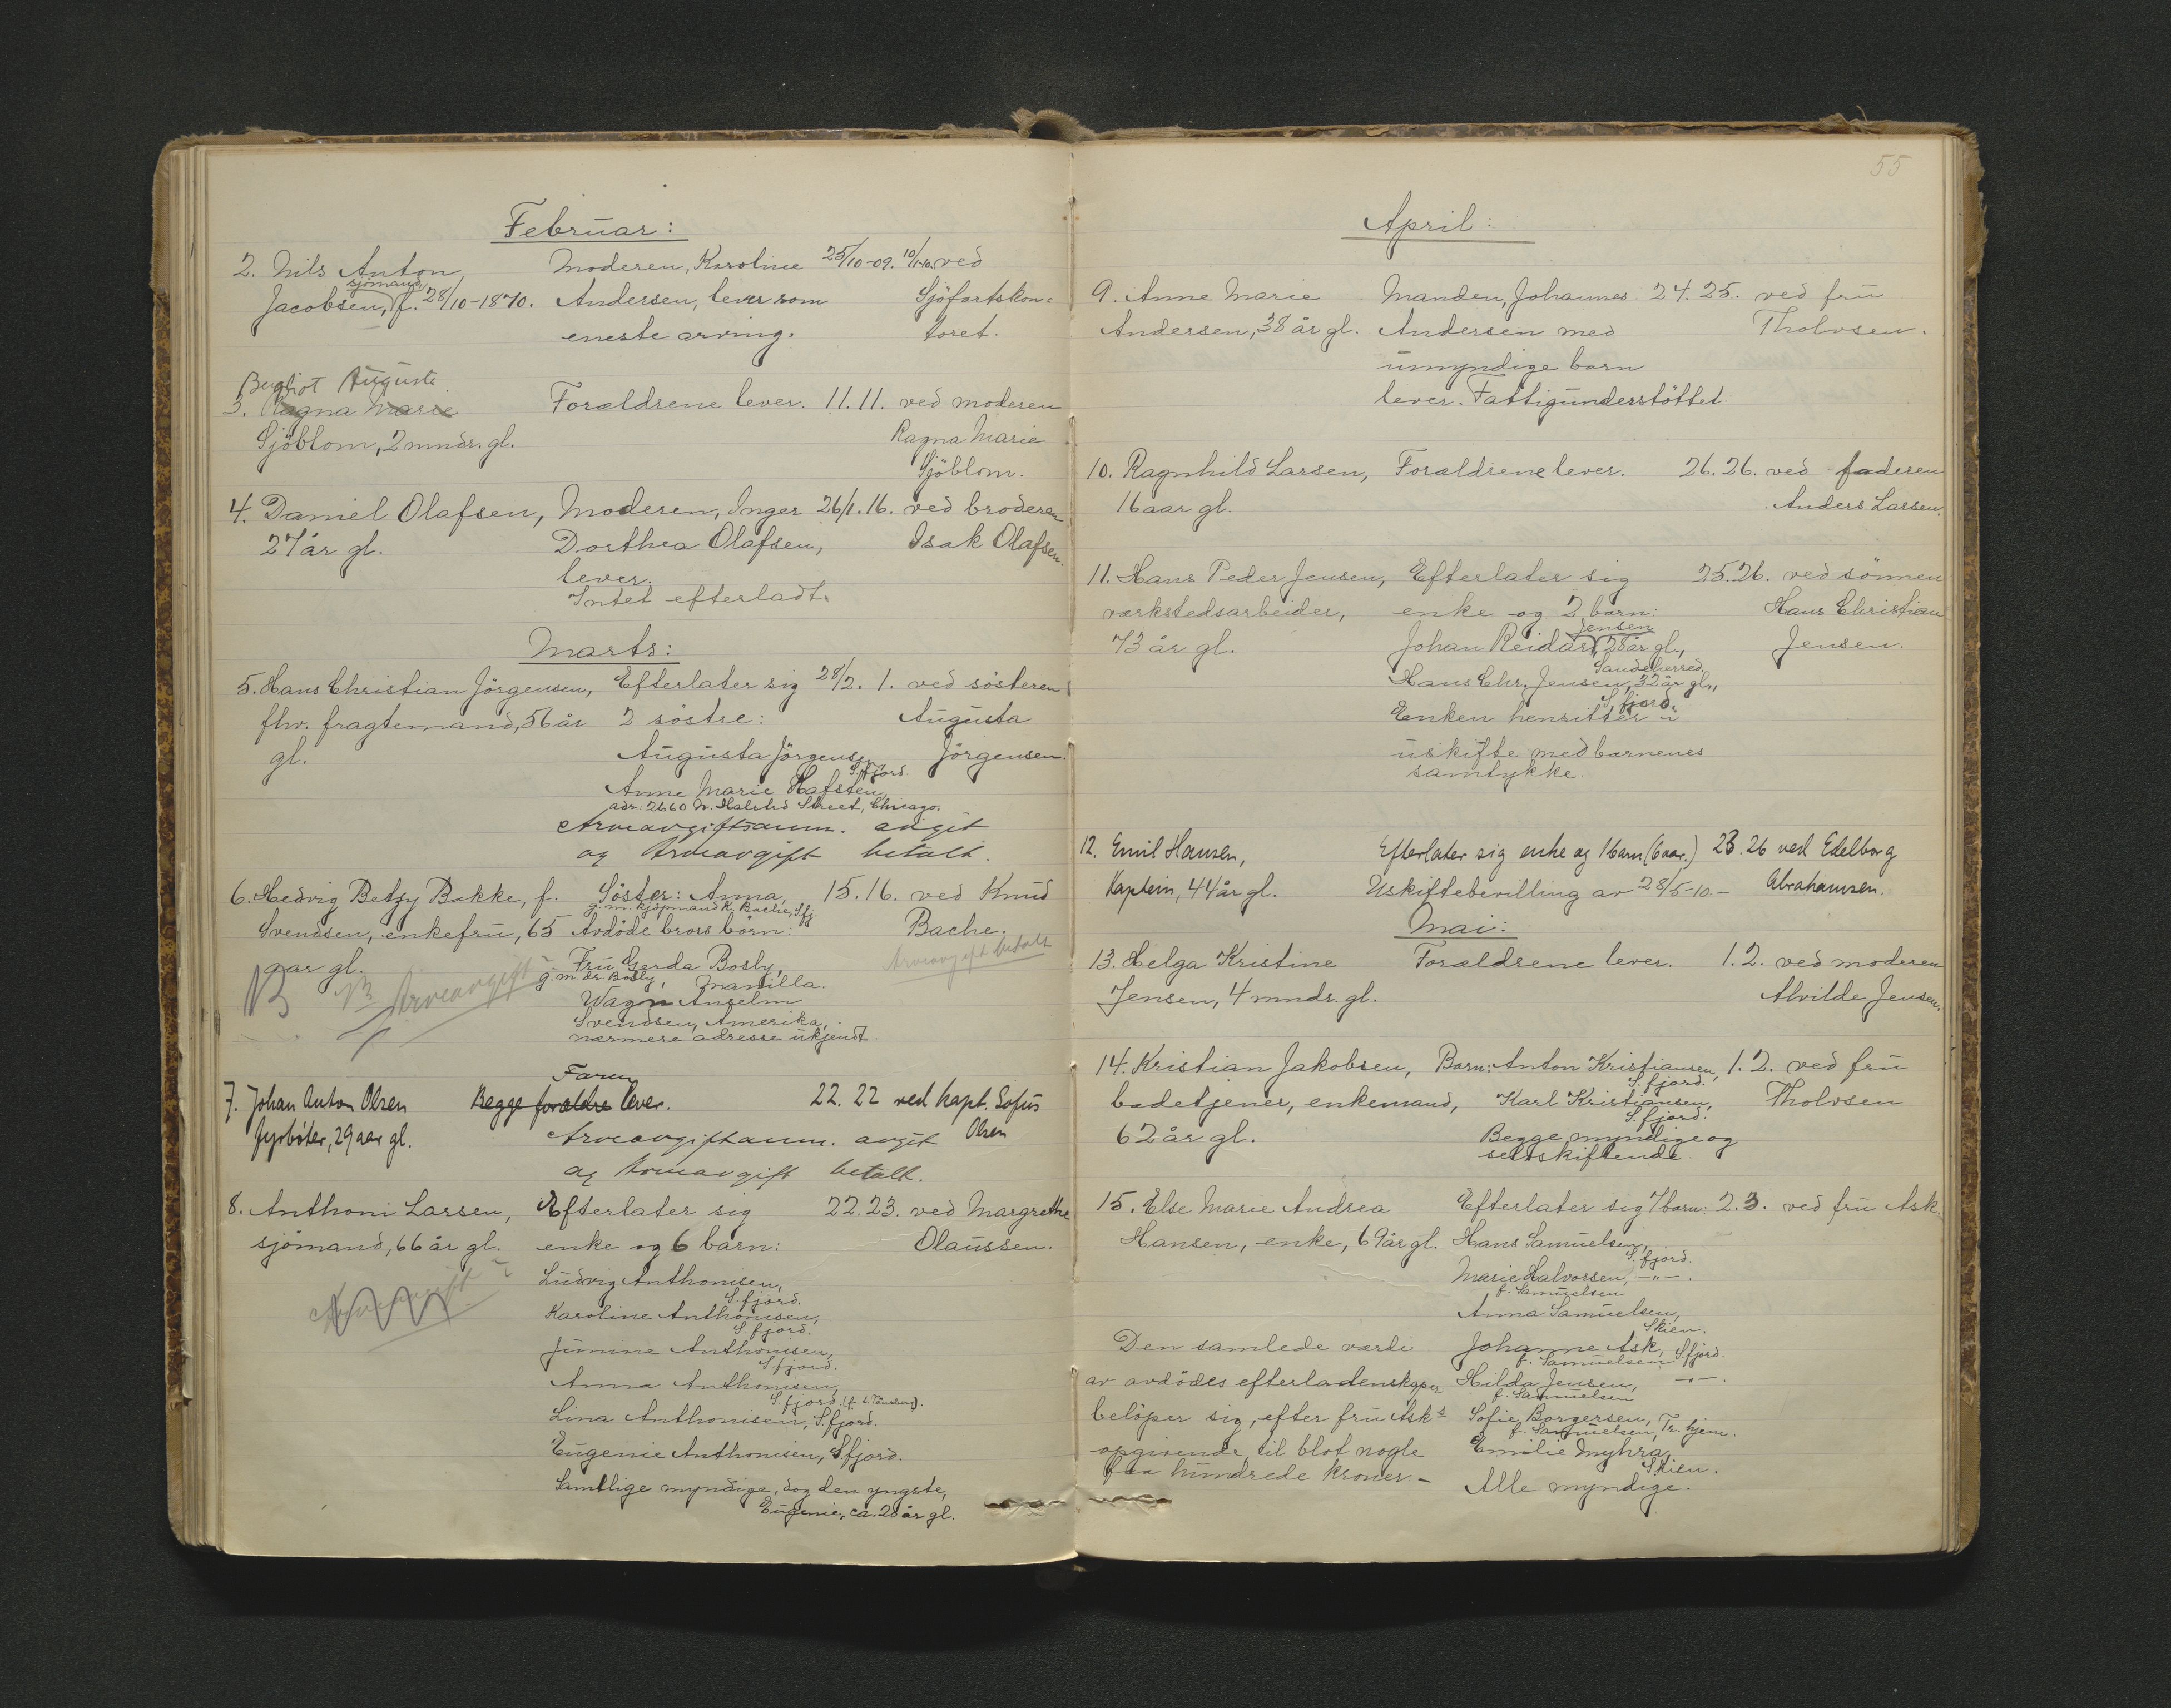 Februar:
2. Nils Anton Moderen, Karoline 25/10-09. 10/1-10. ved
sjömand,
Jacobsen, f. 28/10-1870. Andersen, lever som Sjöfartskon-
eneste arving. toret.
Bergliot Augusta
3. Ragna Marie Forældrene lever. 11. 11. ved moderen
Sjöblom, 2 mndr. gl. Ragna Marie
Sjöblom.
4. Daniel Olafsen, Moderen, Inger 26/1. 16. ved broderen
27 år gl. Dorthea Olafsen, Isak Olafsen.
lever.
Intet efterladt.
Marts:
5. Hans Christian Jörgensen, Efterlater sig 28/2. 1. ved søsteren
fhv. fragtemand, 56 år 2 søstre: Augusta
gl. Augusta Jörgensen, Jörgensen.
S.fjord.
Anne Marie Hafsten,
adr: 2660 N. Halsted Street, Chicago.
Arveavgiftsanm. avgit
og Arveavgift betalt.
6. Hedvig Betzy Bakke, f. Söster: Anna, 15. 16. ved Knud
g. m. kjöpmand K. Bache, Sfj.
Svendsen, enkefru, 65 Avdöde brors börn: Bache.
aar gl. Fru Gerda Bosly, Arveavgift betalt
g. m. dr. Bosly, Manilla.
Arveavgift
Wagn Anselm
Svendsen, Amerika,
nærmere adresse ukjendt.
Faren
7. Johan Anton Olsen Begge forældre lever. 22. 22 ved kapt. Sofus
fyrböter, 29 aar gl. Arveavgiftsanm. avgit Olsen
og Arveavgift betalt.
8. Anthoni Larsen, Efterlater sig 22. 23. ved Margrethe
sjömand, 66 år gl. enke og 6 barn: Olaussen.
Arveavgift
Ludvig Anthonisen,
S.fjord.
Karoline Anthonisen,
S.fjord.
Jimine Anthonisen,
S.fjord.
Anna Anthonisen,
S.fjord.
Lina Anthonisen, S.fjord.
Eugenie Anthonisen, S.fjord.
Samtlige myndige, dog den yngste,
Eugenie, ca. 20 år gl.
55
April:
9. Anne Marie Manden, Johannes 24. 25. ved fru
Andersen, 38 år gl. Andersen med Tholvsen.
umyndige barn
lever. Fattigunderstöttet.
10. Ragnhild Larsen, Forældrene lever. 26. 26. ved faderen
16 aar gl. Anders Larsen.
11. Hans Peder Jensen, Efterlater sig 25. 26. ved sönnen
værkstedsarbeider, enke og 2 barn: Hans Christian
Jensen
73 år gl. Johan Reidar, 28 år gl., Jensen.
Sandeherred,
Hans Chr. Jensen, 32 år gl.,
S.fjord.
Enken hensitter i
uskifte med barnenes
samtykke.
12. Emil Hansen, Efterlater sig enke og 1 barn (6 aar.) 23. 26 ved Edelborg
Kaptein, 44 år gl. Uskiftebevilling av 28/5-10.- Abrahamsen.
Mai:
13. Helga Kristine Forældrene lever. 1. 2. ved moderen
Jensen, 4 mndr. gl. Alvilde Jensen.
14. Kristian Jakobsen, Barn: Anton Kristiansen, 1. 2. ved fru
S.fjord.
badetjener, enkemand, Karl Kristiansen, Tholvsen
S.fjord.
62 år gl. Begge myndige og
selvskiftende.
15. Else Marie Andrea Efterlater sig 7 barn: 2. 3. ved fru Ask.
Hansen, enke, 69 år gl. Hans Samuelsen,
S.fjord.
Marie Halvorsen, -"-.
f. Samuelsen
Anna Samuelsen,
Skien.
Den samlede værdi Johanne Ask,
f. Samuelsen S.fjord.
av avdödes efterladenskaper Hilda Jensen, -"-.
f. Samuelsen
belöper sig, efter fru Asks Sofie Borgersen,
f. Samuelsen, Tr. hjem.
opgivende, til blot nogle Emilie Myhra,
Skien.
faa hundrede kroner.- Alle myndige.